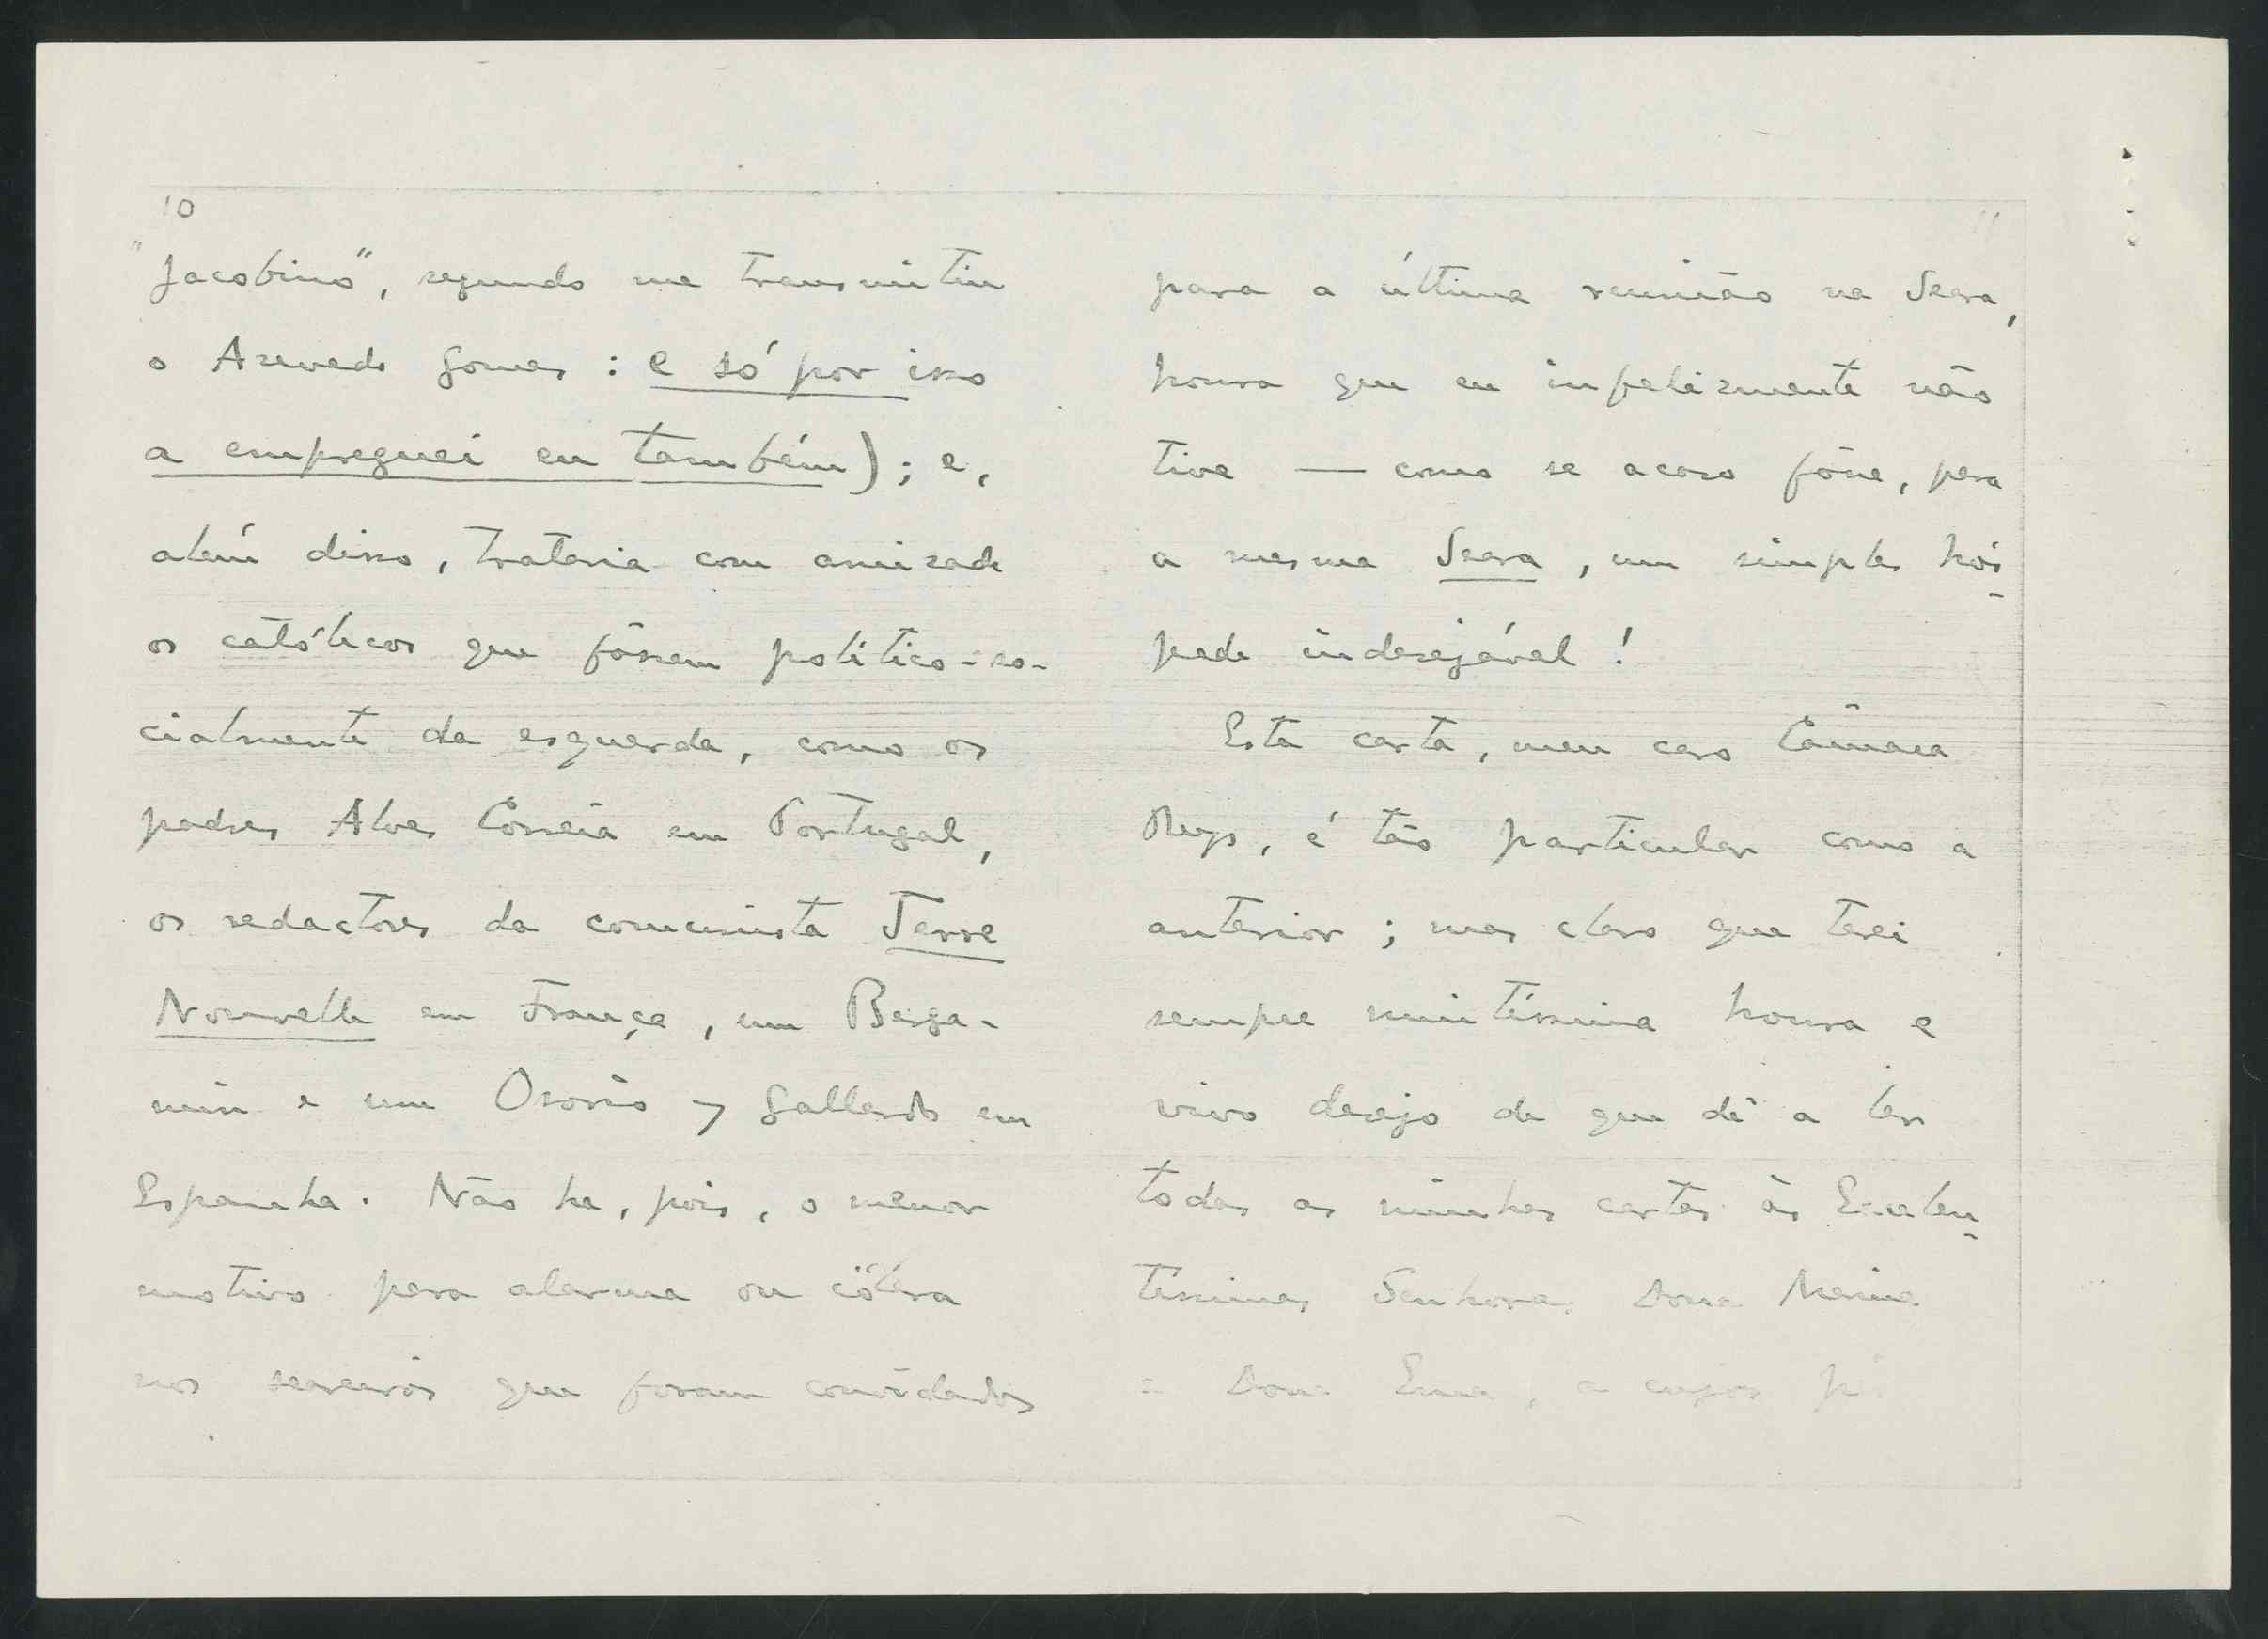 10
"Jacobino", segundo me transmitiu
o Azevedo Gomes : e só por isso
a empreguei eu também) ; e,
além disso, trataria com amizade
os católicos que fôssem político-so-
cialmente da esquerda, como os
padres Alves Correia em Portugal,
os redactores da comunista Terre
Nouvelle em França, um Berga-
min e um Osorio y Gallardo em
Espanha. Não ha, pois, o menor
motivo para alarme ou cólera
nos seareiros que foram convidados
11
para a última reunião na Seara,
honra que eu infelizmente não
tive — como se acaso fôsse, para
a mesma Seara, um simples hós-
pede indesejável !
Esta carta, meu caro Câmara
Reys, é tão particular como a
anterior ; mas claro que terei
sempre muitíssima honra e
vivo desejo de que dê a ler
todas as minhas cartas às Excelen-
tíssimas Senhoras Dona Maria
e Dona Ema, a cujos pés